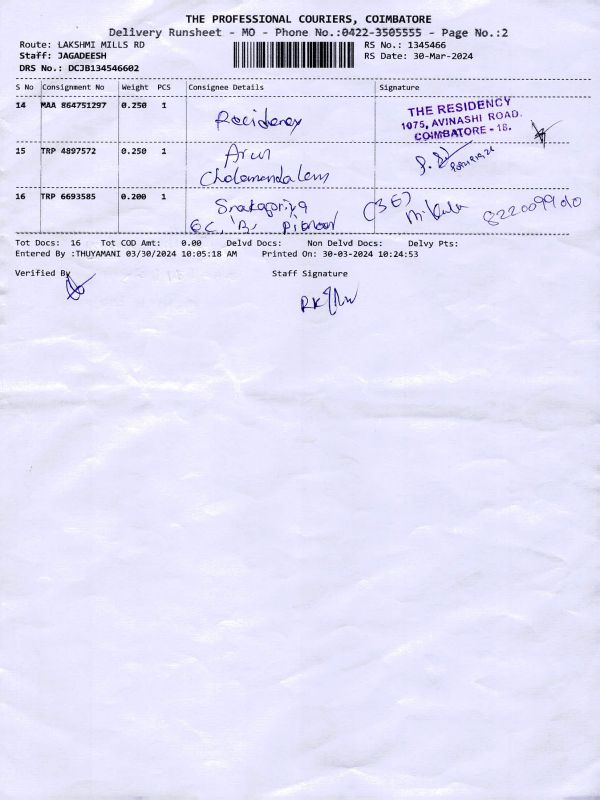 THE PROFESSIONAL COURIERS, COIMBATORE
Delivery Runsheet - MO - Phone No.:0422-3505555 - Page No.:2
Route: LAKSHMI MILLS RD RS No.: 1345466
Staff: JAGADEESH RS Date: 30-Mar-2024
DRS No.: DCJB134546602
S No Consignment No Weight PCS Consignee Details Signature
14 MAA 864751297 0.250 1 Recidency
THE RESIDENCY
1075, AVINASHI ROAD.
COIMBATORE - 18.
15 TRP 4897572 0.250 1 Arun
Cholamandalam
16 TRP 6693585 0.200 1 (3E)
6C, 'B,
Tot Docs: 16 Tot COD Amt: 0.00 Delvd Docs: Non Delvd Docs: Delvy Pts:
Entered By :THUYAMANI 03/30/2024 10:05:18 AM Printed On: 30-03-2024 10:24:53
Verified By Staff Signature